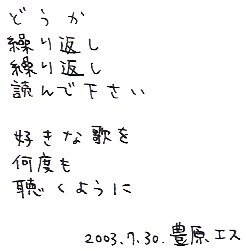 どうか
繰り返し
繰り返し
読んで下さい
好きな歌を
何度も
聴くように
2003.7.30. 豊原エス